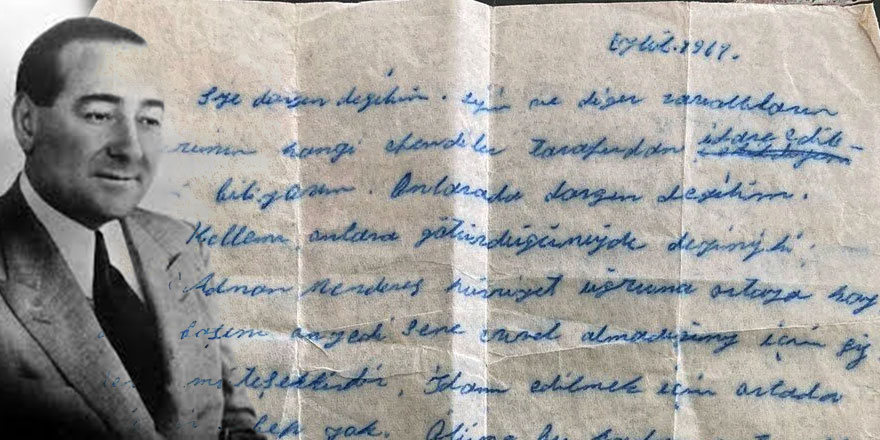 Eylül. 1961.
Size dargın değilim. Sizin ve diğer zavallıların
hangi efendiler tarafından idare edil-
biliyorum. Onlarada dargın değilim.
Kellemi, onlara götürdüğünüzde deyiniz ki;
Adnan Menderes hürriyet uğruna ortaya koy
başını onyedi sene evvel almadığınız için siz
müteşekkirdir. İdam edilmek için ortada
yok. Ölüme bu kadar